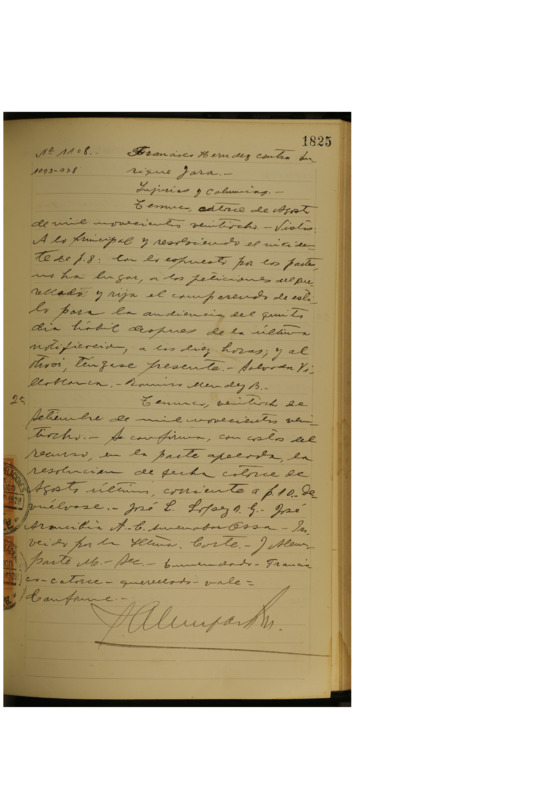 1825
Nº 1108.- Francisco Hernandez contra En
rique Jara.-
Injurias y calumnias.-
Temuco, catorce de Agosto
de mil novecientos veintiocho.- Vistos:
A lo principal y resolviendo el inciden
te de f. 8: Con lo expuesto por las partes,
no ha lugar, a las peticiones del que
rellado y rija el comparendo de esti
lo para la audiencia del quinto
dia hábil despues de la última
notificacion, a las diez horas; y al
otrosí, téngase presente.- Salvador Vi
llablanca.- Ramiro Mendez B.-
2a Temuco, veintiocho de
Setiembre de mil novecientos vein
tiocho.- Se confirma, con costas del
recurso, en la parte apelada, la
resolucion de fecha catorce de
Agosto último, corriente a f. 10. De
vuélvase.- José L. Lopez A. G.- José
Arancibia A.- C. Ossa.- Pro
veido por la Iltma. Corte.- J
parte M.- Sec.- Enmendado- Francis
co- catorce- querellado- vale=
Conforme.-